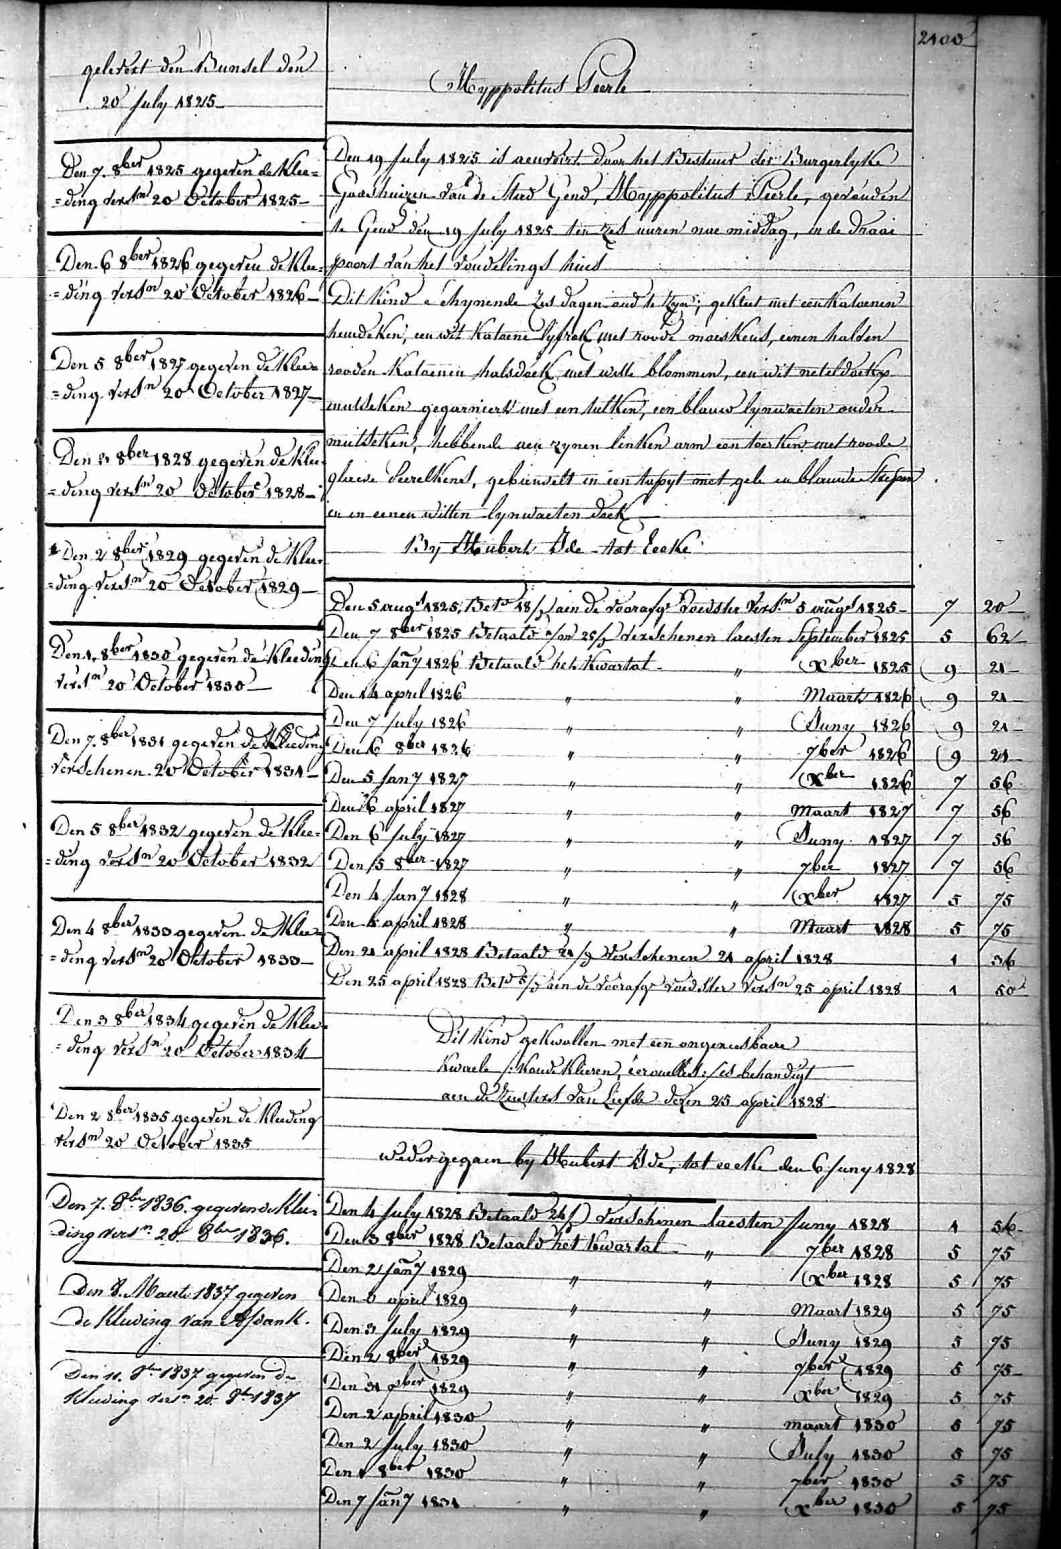 2100
gelevert den Bunsel den
20 July 1825
Den 7. 8ber 1825 gegeven de Klee=
=ding versn 20 October 1825
Den 6 8ber 1826 gegeven de Klee=
=ding versn 20 October 1826
Den 5 8ber 1827 gegeven de Klee=
=ding versn 20 October 1827
Den 3 8ber 1828 gegeven de Klee
=ding versn 20 October 1828
Den 2 8ber 1829 gegeven de Klee
=ding versn 20 October 1829
Den 1. 8ber 1830 gegeven de Kleeding
versn 20 October 1830
Den 7. 8ber 1831 gegeven de Kleeding
verschenen 20 October 1831
Den 5 8ber 1832 gegeven de Klee=
=ding versn 20 October 1832
Den 4 8ber 1833 gegeven de Klee
=ding versn 20 October 1833
Den 3 8ber 1834 gegeven de Klee
=ding versn 20 October 1834
Den 2 8ber 1835 gegeven de Kleeding
versn 20 October 1835
Den 7. 8ber 1836. gegeven de Klee
ding versn 20 8ber 1836.
Den 8. Maerte 1837 gegeven
de Kleeding van Afdank.
Den 11. 8ber 1837 gegeven de
Kleeding versn 20. 8ber 1837
Hyppolitus Peerle
Den 19 July 1825 is aenveirt door het Bestuur der Burgerlyke
Godshuizen van de Stad Gend, Hyppolitus Peerle, gevonden
te Gend den 19 July 1825 ten zes uuren nae middag, in de draai
poort van het vondelings huis
Dit Kind schynende zes dagen oud te zyn; gekleet met een Katoenen
hemdeken, een wit Katoene lyfrok met roode moeskens, eenen halven
rooden Katoenen halsdoek, met witte blommen, een wit neteldoekx
mutseken gegarniert met een tulken, een blauw lynwaeten onder
mutsteken, hebbende aen zynen linken arm een toerken met roode
glaese Peerelkens, gebunselt in een tapyt met gele en blauwe strepen
en in eenen witten lynwaeten doek
By Hubert Ide tot Eecke
Den 5 augt 1825, Betd 18/f aen de voorafge voedster versn 5 augt 1825 7 20
Den 7 8ber 1825 Betaald 25/f verschenen laesten September 1825 5 62
Den 6 Jany 1826 Betaald het Kwartal " Xber 1825 9 21
Den 14 april 1826 " " Maart 1826 9 21
Den 7 July 1826 " " Juny 1826 9 21
Den 6 8ber 1826 " " 7ber 1826 9 21
Den 5 Jany 1827 " " Xber 1826 7 56
Den 6 april 1827 " " Maart 1827 7 56
Den 6 July 1827 " " Juny 1827 7 56
Den 5 8ber 1827 " " 7ber 1827 7 56
Den 4 Jany 1828 " " Xber 1827 5 75
Den 5 april 1828 " " Maart 1828 5 75
Den 21 april 1828 Betaald 21/f verschenen 21 april 1828 1 36
Den 25 april 1828 Betd 5/f aen de voorafge voedster versn 25 april 1828 1 50
Dit Kind gekwollen met een ongeneesbaere
Kwaele /: Koude Klieren, écrouelles :/ is behandigt
aen de Zusters van Liefde dezen 25 april 1828
wedergegaen by Hubert Ide, tot eecke den 6 Juny 1828
Den 4 July 1828 Betaald 26/f verschenen laesten Juny 1828 1 56
Den 3 8ber 1828 Betaald het Kwartal " 7ber 1828 5 75
Den 2 Jany 1829 " " Xber 1828 5 75
Den 6 april 1829 " " Maart 1829 5 75
Den 3 July 1829 " " Juny 1829 5 75
Den 2 8ber 1829 " " 7ber 1829 5 75
Den 31 Xber 1829 " " Xber 1829 5 75
Den 2 april 1830 " " maart 1830 5 75
Den 2 July 1830 " " July 1830 5 75
Den 1 8ber 1830 " " 7ber 1830 5 75
Den 7 Jany 1831 " " Xber 1830 5 75